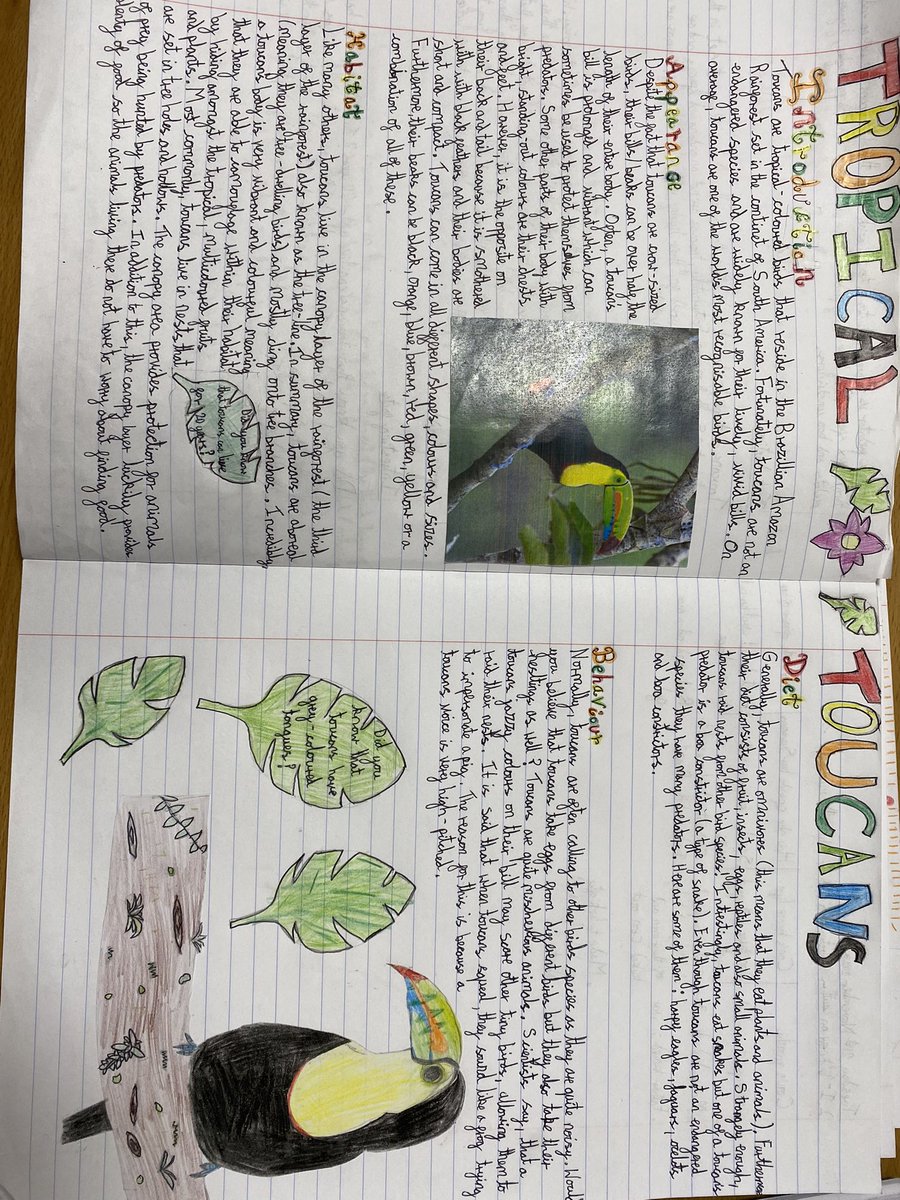 TROPICAL TOUCANS
Introduction
Toucans are tropical-coloured birds that reside in the Brazillian Amazon
Rainforest set in the continent of South America. Fortunately, toucans are not an
endangered species and are widely known for their lively, vivid bills. On
average, toucans are one of the worlds most recognisable birds.
Appearance
Despite the fact that toucans are crow-sized
birds, their bills/beaks can be over half the
length of their entire body. Often, a toucan's
bill is prolonged and vibrant which can
sometimes be used to protect themselves from
predators. Some other parts of their body with
bright, standing out colours are their chests
and feet. However, it is the opposite on
their back and tail because it is smothered
with with black feathers and their bodies are
short and compact. Toucans can come in all different shapes, colours and sizes.
Furthermore, their beaks can be black, orange, blue, brown, red, green, yellow or a
combination of all of these.
Habitat
Like many others, toucans live in the canopy layer of the rainforest (the third
layer of the rainforest) also known as the tree-line. In summary, toucans are aboreal
(meaning they are tree-dwelling birds) and mostly cling onto tree branches. Incredibly
a toucans body is very vibrant and colourful meaning
that they are able to camouflage within their habitat
by hiding amongst the tropical, multicoloured fruits
and plants. Most commonly, toucans live in nests that
are set in tree holes and hollows. The canopy area provides protection for animals
of prey being hunted by predators. In addition to this, the canopy layer luckily provides
plenty of food so the animals living there do not have to worry about finding food.
Did you know
that toucans can live
for 20 years?
Diet
Generally, toucans are omnivores (this means that they eat plants and animals). Furthermore
their diet consists of fruit, insects, eggs, reptiles and also small animals. Strangely enough,
toucans raid nests from other bird species. Interestingly, toucans eat snakes but one of a toucans
predator is a boa constrictor (a type of snake). Even though toucans are not an endangered
species they have many predators. Here are some of them: harpy eagles, jaguars, ocelots
and boa constrictors.
Behaviour
Normally, toucans are often calling to other birds species as they are quite noisy. Would
you believe that toucans take eggs from different birds but they also take their
nestlings as well? Toucans are quite mischievous animals. Scientists say, that a
toucans jazzy colours on their bill may scare other tiny birds, allowing them to
raid their nests. It is said that when toucans squeal, they sound like a frog trying
to impersonate a pig. The reason for this is because a
toucans voice is very high-pitched.
Did you
know that
toucans have
grey-coloured
tongues?